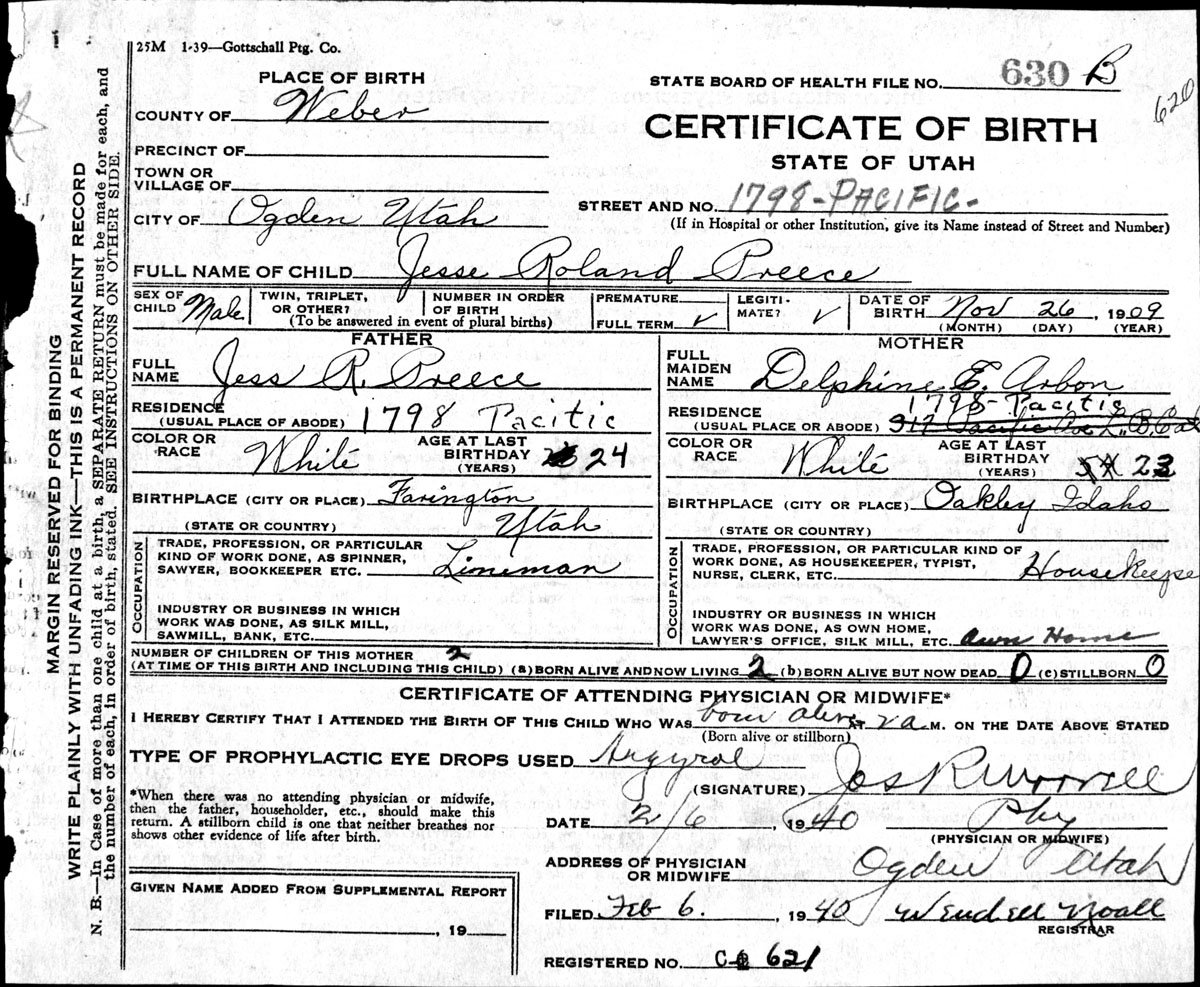 25M 1-39—Gottschall Ptg. Co.
PLACE OF BIRTH
STATE BOARD OF HEALTH FILE NO. 630 B
620
COUNTY OF Weber
CERTIFICATE OF BIRTH
PRECINCT OF
STATE OF UTAH
TOWN OR
VILLAGE OF
STREET AND NO. 1798-PACIFIC-
CITY OF Ogden Utah
(If in Hospital or other Institution, give its Name instead of Street and Number)
FULL NAME OF CHILD Jesse Roland Preece
SEX OF CHILD Male
TWIN, TRIPLET, OR OTHER?
NUMBER IN ORDER OF BIRTH
(To be answered in event of plural births)
PREMATURE
FULL TERM ✓
LEGITI-MATE? ✓
DATE OF BIRTH Nov 26, 1909
(MONTH) (DAY) (YEAR)
FATHER
FULL NAME Jess R. Preece
RESIDENCE 1798 Pacific
(USUAL PLACE OF ABODE)
COLOR OR RACE White
AGE AT LAST BIRTHDAY (YEARS) 24
BIRTHPLACE (CITY OR PLACE) Farington
(STATE OR COUNTRY) Utah
OCCUPATION
TRADE, PROFESSION, OR PARTICULAR
KIND OF WORK DONE, AS SPINNER,
SAWYER, BOOKKEEPER ETC. Lineman
INDUSTRY OR BUSINESS IN WHICH
WORK WAS DONE, AS SILK MILL,
SAWMILL, BANK, ETC.
MOTHER
FULL MAIDEN NAME Delphine E. Arbon
1798-Pacific
RESIDENCE
(USUAL PLACE OF ABODE) 917 Pacific
COLOR OR RACE White
AGE AT LAST BIRTHDAY (YEARS) 54 23
BIRTHPLACE (CITY OR PLACE) Oakley Idaho
(STATE OR COUNTRY)
OCCUPATION
TRADE, PROFESSION, OR PARTICULAR KIND OF
WORK DONE, AS HOUSEKEEPER, TYPIST,
NURSE, CLERK, ETC. Housekeepe
INDUSTRY OR BUSINESS IN WHICH
WORK WAS DONE, AS OWN HOME,
LAWYER'S OFFICE, SILK MILL, ETC. Own Home
NUMBER OF CHILDREN OF THIS MOTHER 2
(AT TIME OF THIS BIRTH AND INCLUDING THIS CHILD) (a) BORN ALIVE AND NOW LIVING 2 (b) BORN ALIVE BUT NOW DEAD 0 (c) STILLBORN 0
CERTIFICATE OF ATTENDING PHYSICIAN OR MIDWIFE*
I HEREBY CERTIFY THAT I ATTENDED THE BIRTH OF THIS CHILD WHO WAS born alive AT 2 a M. ON THE DATE ABOVE STATED
(Born alive or stillborn)
TYPE OF PROPHYLACTIC EYE DROPS USED Argyrol
(SIGNATURE) Jos R Morrell
*When there was no attending physician or midwife,
then the father, householder, etc., should make this
return. A stillborn child is one that neither breathes nor
shows other evidence of life after birth.
DATE 2/6, 1940 Phy
(PHYSICIAN OR MIDWIFE)
ADDRESS OF PHYSICIAN
OR MIDWIFE Ogden Utah
GIVEN NAME ADDED FROM SUPPLEMENTAL REPORT
, 19
FILED Feb 6, 1940 Wendell Noall
REGISTRAR
REGISTERED NO. 621
MARGIN RESERVED FOR BINDING
WRITE PLAINLY WITH UNFADING INK—THIS IS A PERMANENT RECORD
N. B.—In Case of more than one child at a birth, a SEPARATE RETURN must be made for each, and
the number of each, in order of birth, stated. SEE INSTRUCTIONS ON OTHER SIDE.